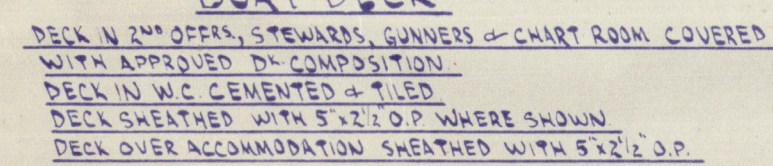 BOAT DECK
DECK IN 2ND OFFRS., STEWARDS, GUNNERS & CHART ROOM COVERED
WITH APPROVED DK. COMPOSITION.
DECK IN W.C. CEMENTED & TILED.
DECK SHEATHED WITH 5"x2½" O.P. WHERE SHOWN.
DECK OVER ACCOMMODATION SHEATHED WITH 5"x2½" O.P.